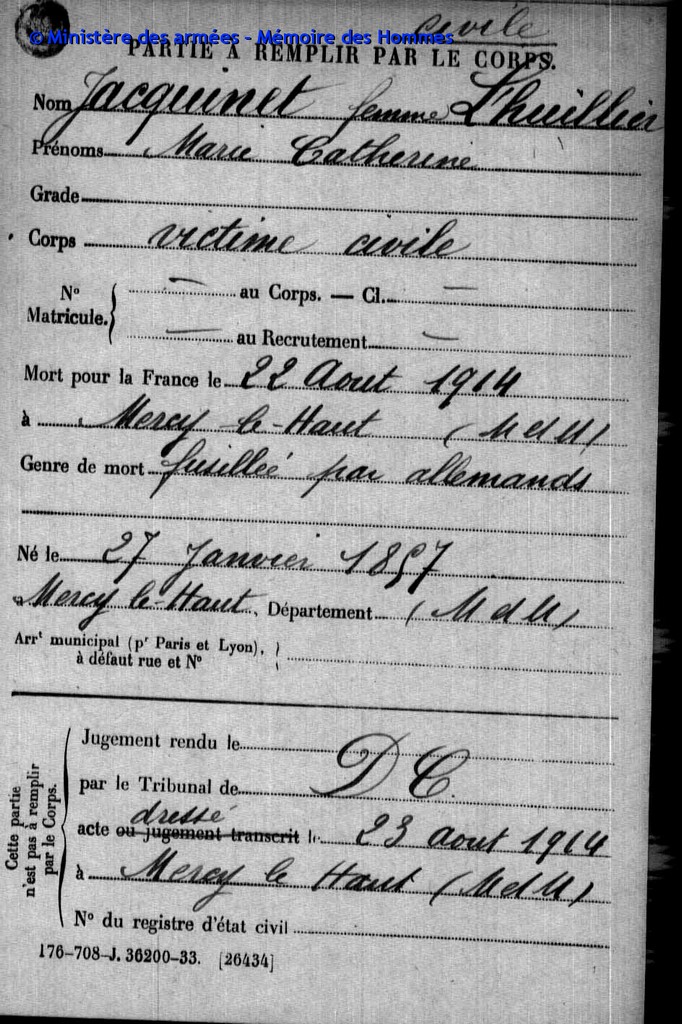 civile
© Ministère des armées - Mémoire des Hommes
PARTIE À REMPLIR PAR LE CORPS.
Nom Jacquinet femme Lhuillier
Prénoms Marie Catherine
Grade
Corps victime civile
N° Matricule. { — au Corps. — Cl. —
— au Recrutement —
Mort pour la France le 22 Aout 1914
à Mercy-le-Haut (M et M)
Genre de mort fusillée par allemands
Né le 27 Janvier 1857
à Mercy le-Haut, Département (M et M)
Arrt municipal (pr Paris et Lyon),
à défaut rue et N°
Cette partie n'est pas à remplir par le Corps.
Jugement rendu le
par le Tribunal de D C.
dressé
acte ou jugement transcrit le 23 aout 1914
à Mercy le Haut (M et M)
N° du registre d'état civil
176-708-J. 36200-33. [26434]